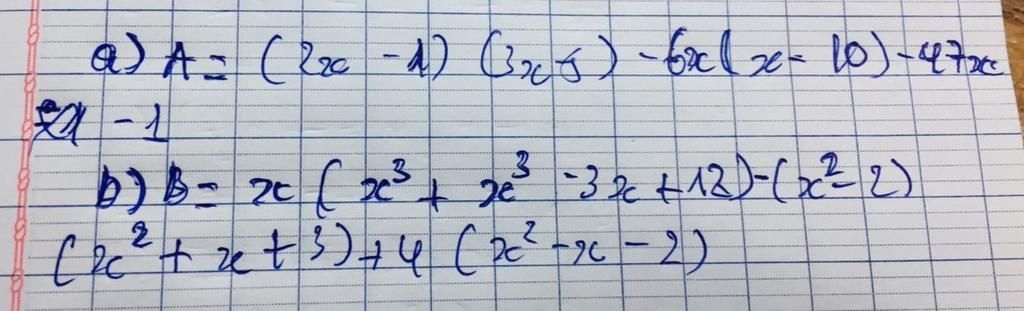 a) A = (2x - 1) (3x - 5) - 6x(x - 10) - 47x
- 1
b) B = x (x³ + x³ - 3x + 12) - (x² - 2)
(x² + x + 3) + 4 (x² - x - 2)